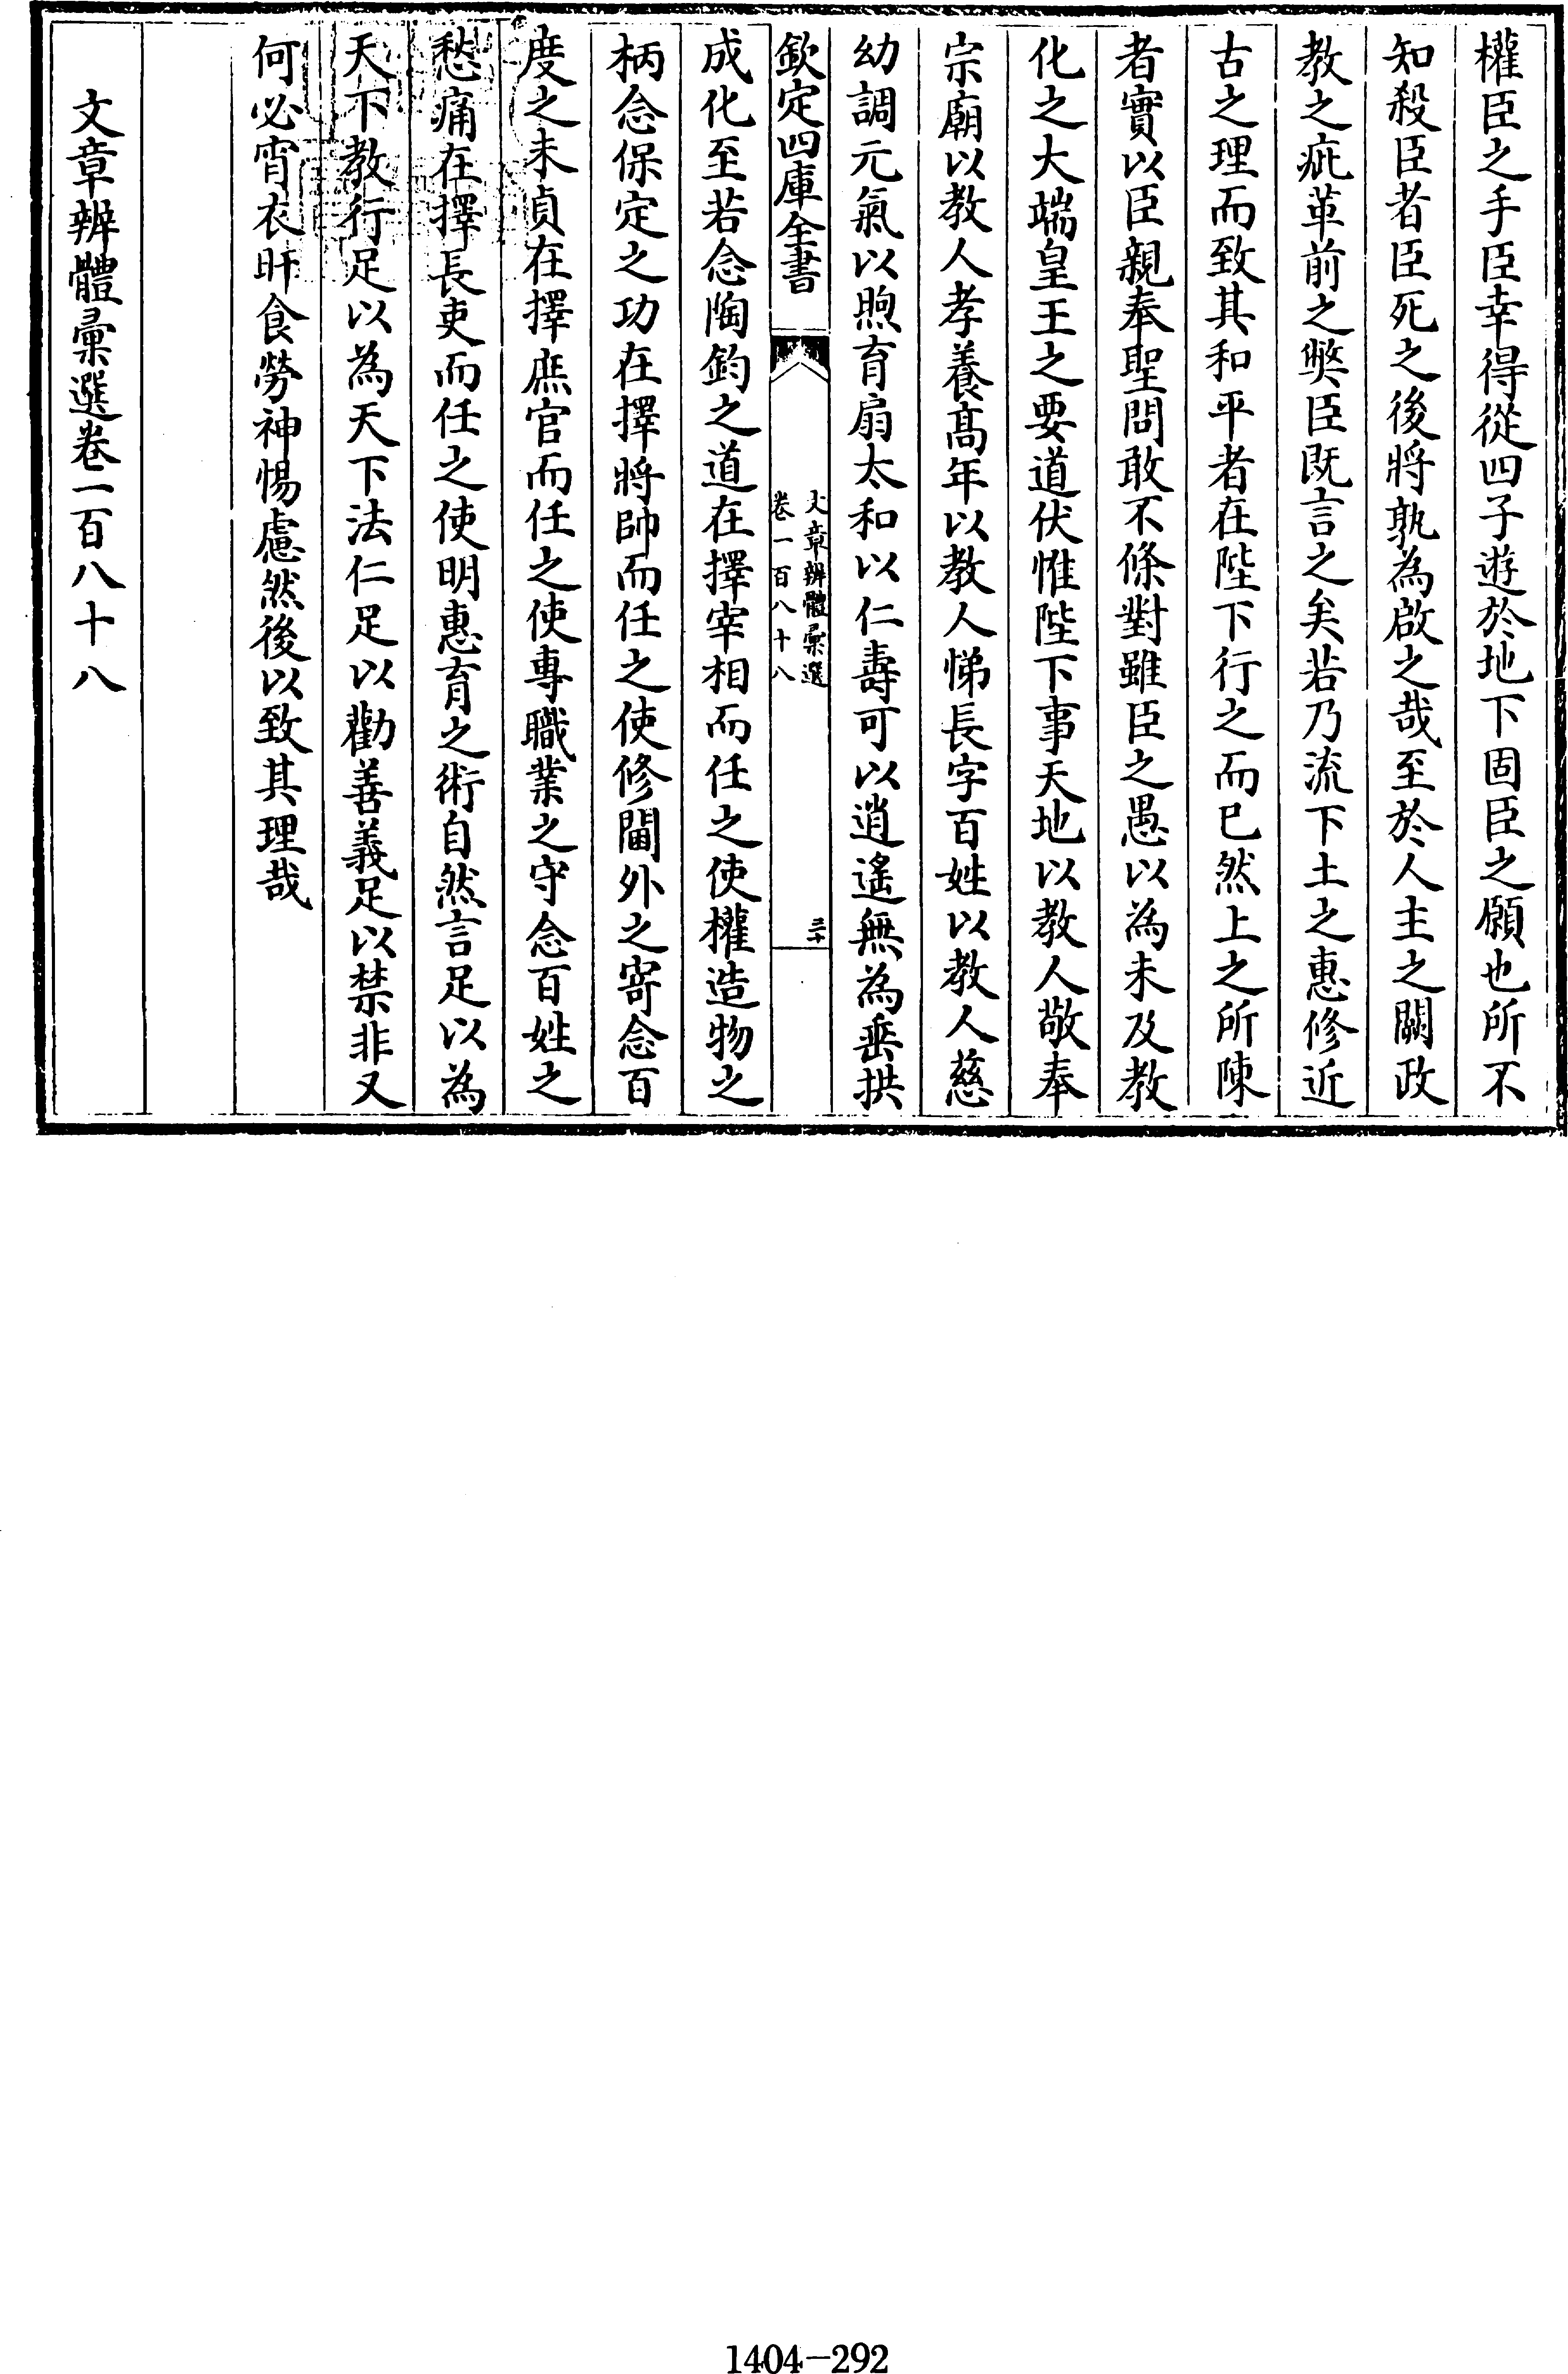 權臣之手臣幸得從四子遊於地下固臣之願也所不
知殺臣者臣死之後將孰為啟之哉至於人主之闕政
教之疵革前之弊臣既言之矣若乃流下土之惠修近
古之理而致其和平者在陛下行之而已然上之所陳
者實以臣親奉聖問敢不條對雖臣之愚以為未及教
化之大端皇王之要道伏惟陛下事天地以教人敬奉
宗廟以教人孝養高年以教人悌長字百姓以教人慈
幼調元氣以煦育扇太和以仁壽可以逍遙無為垂拱
欽定四庫全書
文章辨體彙選
卷一百八十八
三十
成化至若念陶鈞之道在擇宰相而任之使權造物之
柄念保定之功在擇將帥而任之使修閫外之寄念百
度之未貞在擇庶官而任之使專職業之守念百姓之
愁痛在擇長吏而任之使明惠育之術自然言足以為
天下教行足以為天下法仁足以勸善義足以禁非又
何必宵衣旰食勞神惕慮然後以致其理哉
文章辨體彙選卷一百八十八
1404-292